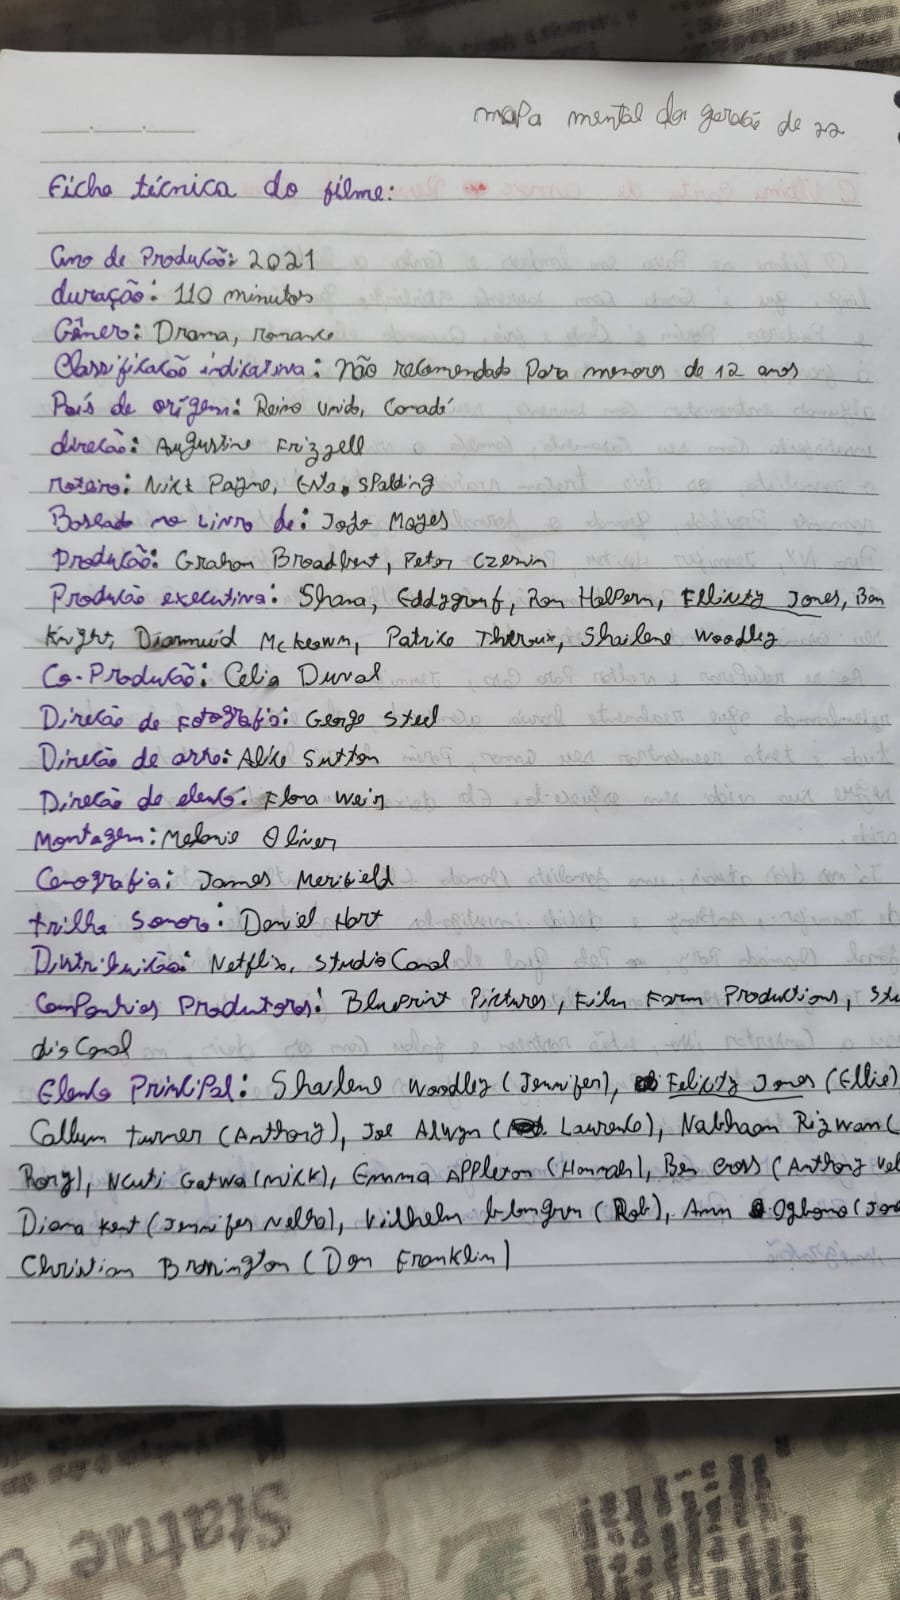 mapa mental da geração de 22
Ficha técnica do filme:
Ano de Produção: 2021
duração: 110 minutos
Gênero: Drama, romance
Classificação indicativa: Não recomendado Para menores de 12 anos
País de origem: Reino Unido, Canadá
direção: Augustine Frizzell
roteiro: Nick Payne, Spalding
Baseado no Livro de: JoJo Moyes
Produção: Graham Broadbent, Peter Czernin
Produção executiva: Shana, Eddygraaf, Ron Halpern, Felicity Jones, Ben
Knight, Diarmuid McKeown, Patrice Theroux, Shailene Woodley
Co-Produção: Celia Duval
Direção de Fotografia: George Steel
Direção de arte: Alice Sutton
Direção de elenco: Flora Weir
Montagem: Melanie Oliver
Cenografia: James Merifield
trilha Sonora: Daniel Hart
Distribuição: Netflix, StudioCanal
Companhias Produtoras: Blueprint Pictures, Film Farm Productions, Stu
dioCanal
Elenco Principal: Shailene Woodley (Jennifer), Felicity Jones (Ellie)
Callum Turner (Anthony), Joe Alwyn (Laurence), Nabhaan Rizwan (
Rory), Ncuti Gatwa (mick), Emma Appleton (Hannah), Ben Cross (Anthony Vel
Diana Kent (Jennifer Velha), Vilhelm (Rob), Ann Ogbomo (
Christian Brassington (Don Franklin)
Statue o